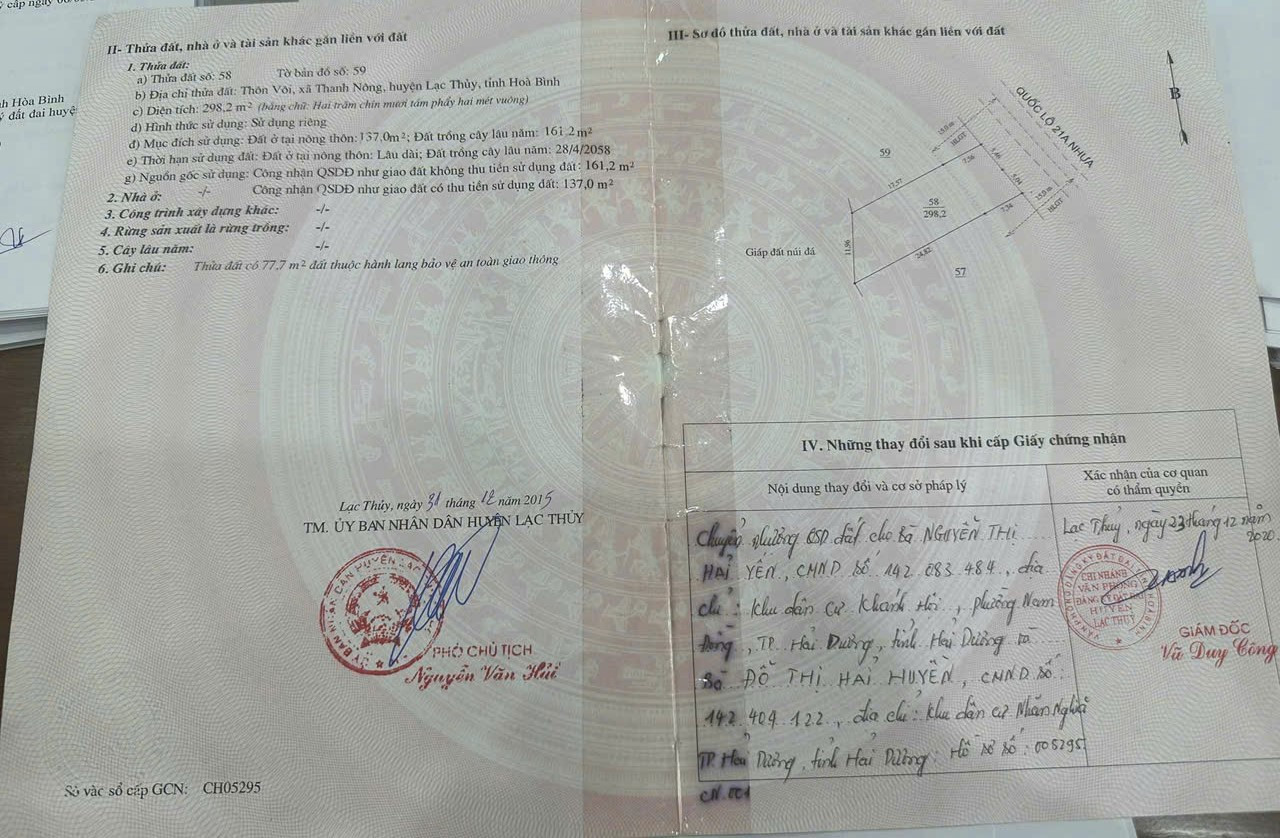 cấp ngày
h Hòa Bình
đất đai huyện
II- Thửa đất, nhà ở và tài sản khác gắn liền với đất
1. Thửa đất:
a) Thửa đất số: 58 Tờ bản đồ số: 59
b) Địa chỉ thửa đất: Thôn Vôi, xã Thanh Nông, huyện Lạc Thủy, tỉnh Hoà Bình
c) Diện tích: 298,2 m² (bằng chữ: Hai trăm chín mươi tám phẩy hai mét vuông)
d) Hình thức sử dụng: Sử dụng riêng
đ) Mục đích sử dụng: Đất ở tại nông thôn:137,0m²; Đất trồng cây lâu năm: 161,2m²
e) Thời hạn sử dụng đất: Đất ở tại nông thôn: Lâu dài; Đất trồng cây lâu năm: 28/4/2058
g) Nguồn gốc sử dụng: Công nhận QSDĐ như giao đất không thu tiền sử dụng đất: 161,2 m²
Công nhận QSDĐ như giao đất có thu tiền sử dụng đất: 137,0 m²
2. Nhà ở: -/-
3. Công trình xây dựng khác: -/-
4. Rừng sản xuất là rừng trồng: -/-
5. Cây lâu năm: -/-
6. Ghi chú: Thửa đất có 77,7 m² đất thuộc hành lang bảo vệ an toàn giao thông
Lạc Thủy, ngày 31 tháng 12 năm 2015
TM. ỦY BAN NHÂN DÂN HUYỆN LẠC THỦY
PHÓ CHỦ TỊCH
Nguyễn Văn Hải
Số vào sổ cấp GCN: CH05295
III- Sơ đồ thửa đất, nhà ở và tài sản khác gắn liền với đất
B
QUỐC LỘ 21A NHỰA
15,0 m
HLGT
59
7,56
5,04
15,0 m
HLGT
17,57
58
298,2
7,34
11,96
Giáp đất núi đá
24,82
57
IV. Những thay đổi sau khi cấp Giấy chứng nhận
Nội dung thay đổi và cơ sở pháp lý
Xác nhận của cơ quan
có thẩm quyền
Chuyển nhượng QSD đất cho Bà NGUYỄN THỊ
HẢI YẾN, CMND Số 142 083 484, địa
chỉ: Khu dân cư Khánh Hội, phường Nam
Đồng, TP. Hải Dương, tỉnh Hải Dương và
Bà ĐỖ THỊ HẢI HUYỀN, CMND Số:
142 404 122, địa chỉ: Khu dân cư Nhân Nghĩa
TP. Hải Dương, tỉnh Hải Dương; Hồ sơ số: 005295
CN.001
Lạc Thuỷ, ngày 23 tháng 12 năm
2020
CHI NHÁNH
VĂN PHÒNG
ĐĂNG KÝ ĐẤT ĐAI
HUYỆN
LẠC THỦY
GIÁM ĐỐC
Vũ Duy Công